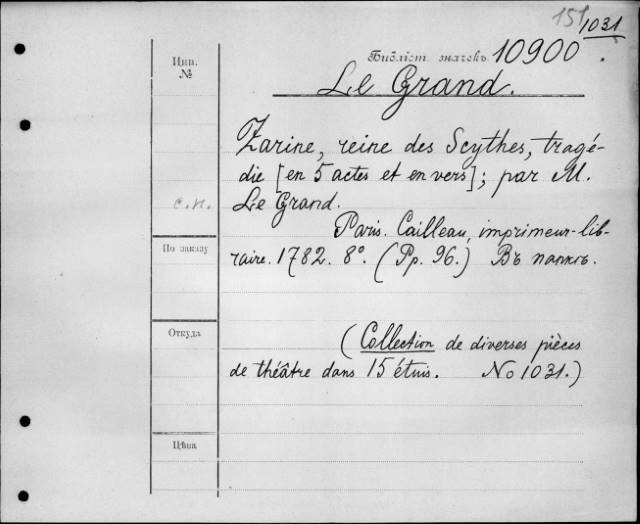 151
1031
Инв.
№
Библіот. значекъ 10900.
Le Grand.
Zarine, reine des Scythes, tragé-
die [en 5 actes et en vers]; par M.
с.н. Le Grand.
Paris. Cailleau, imprimeur-lib-
По заказу
raire. 1782. 8°. (Pp. 96.) Въ папкѣ.
Откуда
(Collection de diverses pièces
de théâtre dans 15 étuis. No 1031.)
Цѣна